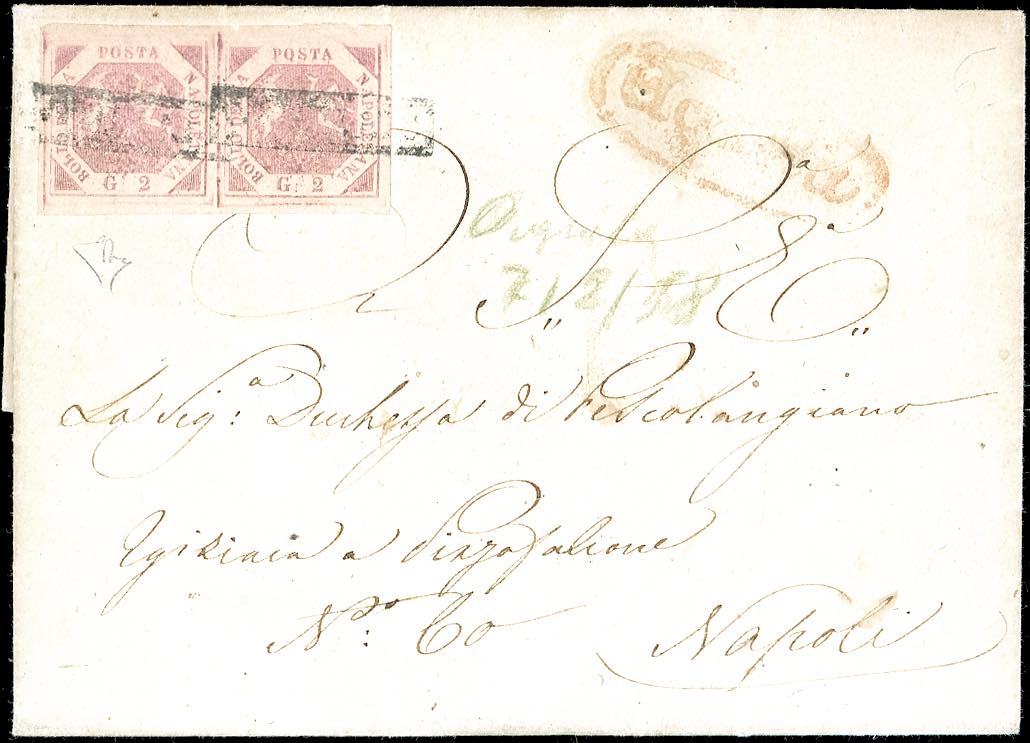 POSTA NAPOLETANA BOLLO G. 2
POSTA NAPOLETANA BOLLO G. 2
7/2/58
A S. E.
La Sig.a Duchessa di Pescolangiano
a Pizzofalcone
N.ro: 60
Napoli